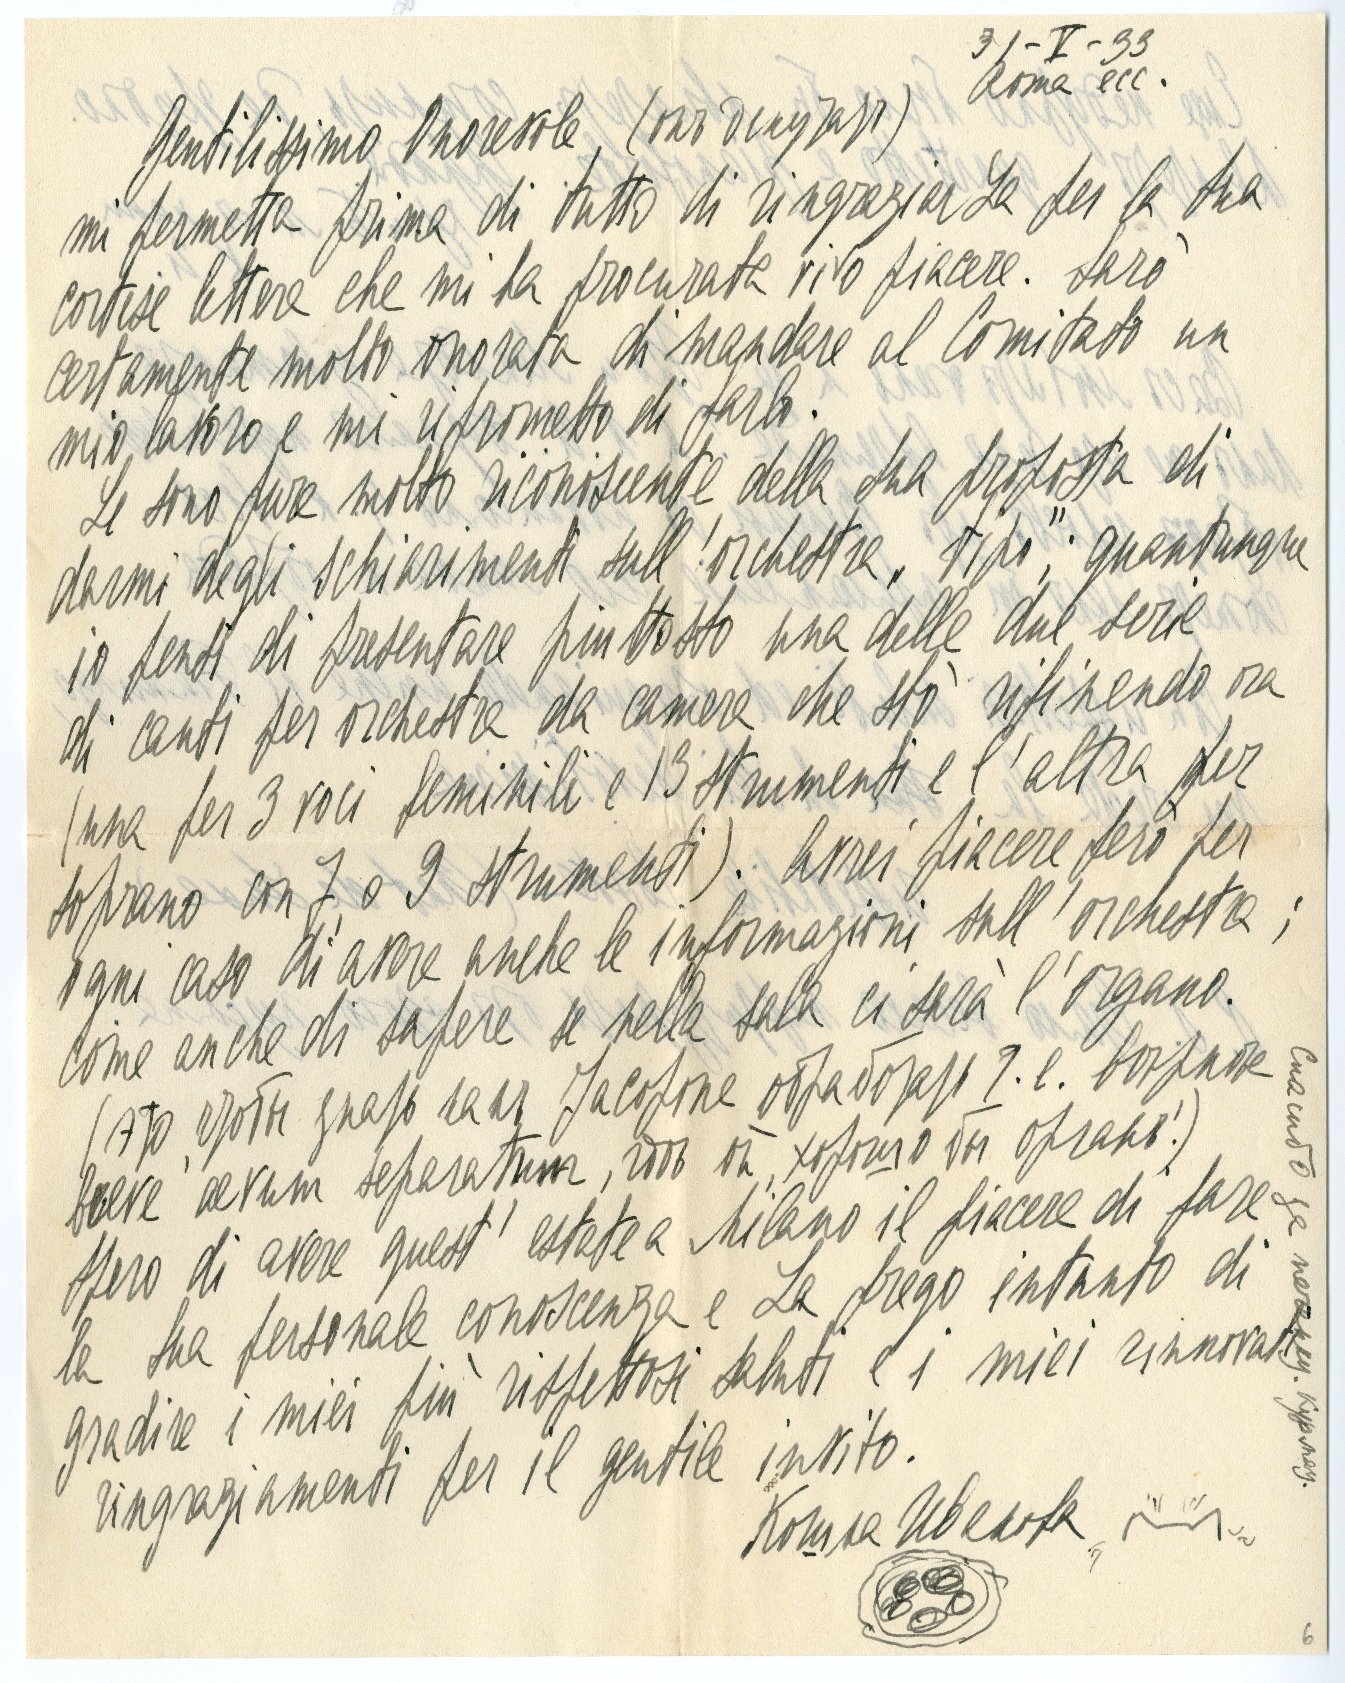 31-V-33
Roma ecc.
Gentilissimo Onorevole, (онъ депутатъ)
mi permetta prima di tutto di ringraziarLa per la Sua
cortese lettera che mi ha procurata vivo piacere. Sarò
certamente molto onorata di mandare al Comitato un
mio lavoro e mi riprometto di farlo.
Le sono pure molto riconoscente della Sua proposta di
darmi degli schiarimenti sull'orchestra „tipo"; quantunque
io pensi di presentare piuttosto una delle due serie
di canti per orchestra da camera che stò rifinendo ora
(una per 3 voci feminili e 13 strumenti e l'altra per
soprano con 7 o 9 strumenti). Avrei piacere però per
ogni caso di avere anche le informazioni sull'orchestra;
come anche di sapere se nella sala ci sarà l'organo.
(это чтобы знать Jacopone обработать 2. e.
breve aevum separatum, хорошо бы органъ!)
Spero di avere quest'estate a Milano il piacere di fare
la Sua personale conoscenza e La prego intanto di
gradire i miei più rispettosi saluti e i miei rinnovati
ringraziamenti per il gentile invito.
Кошка Иванова
Спасибо за
6